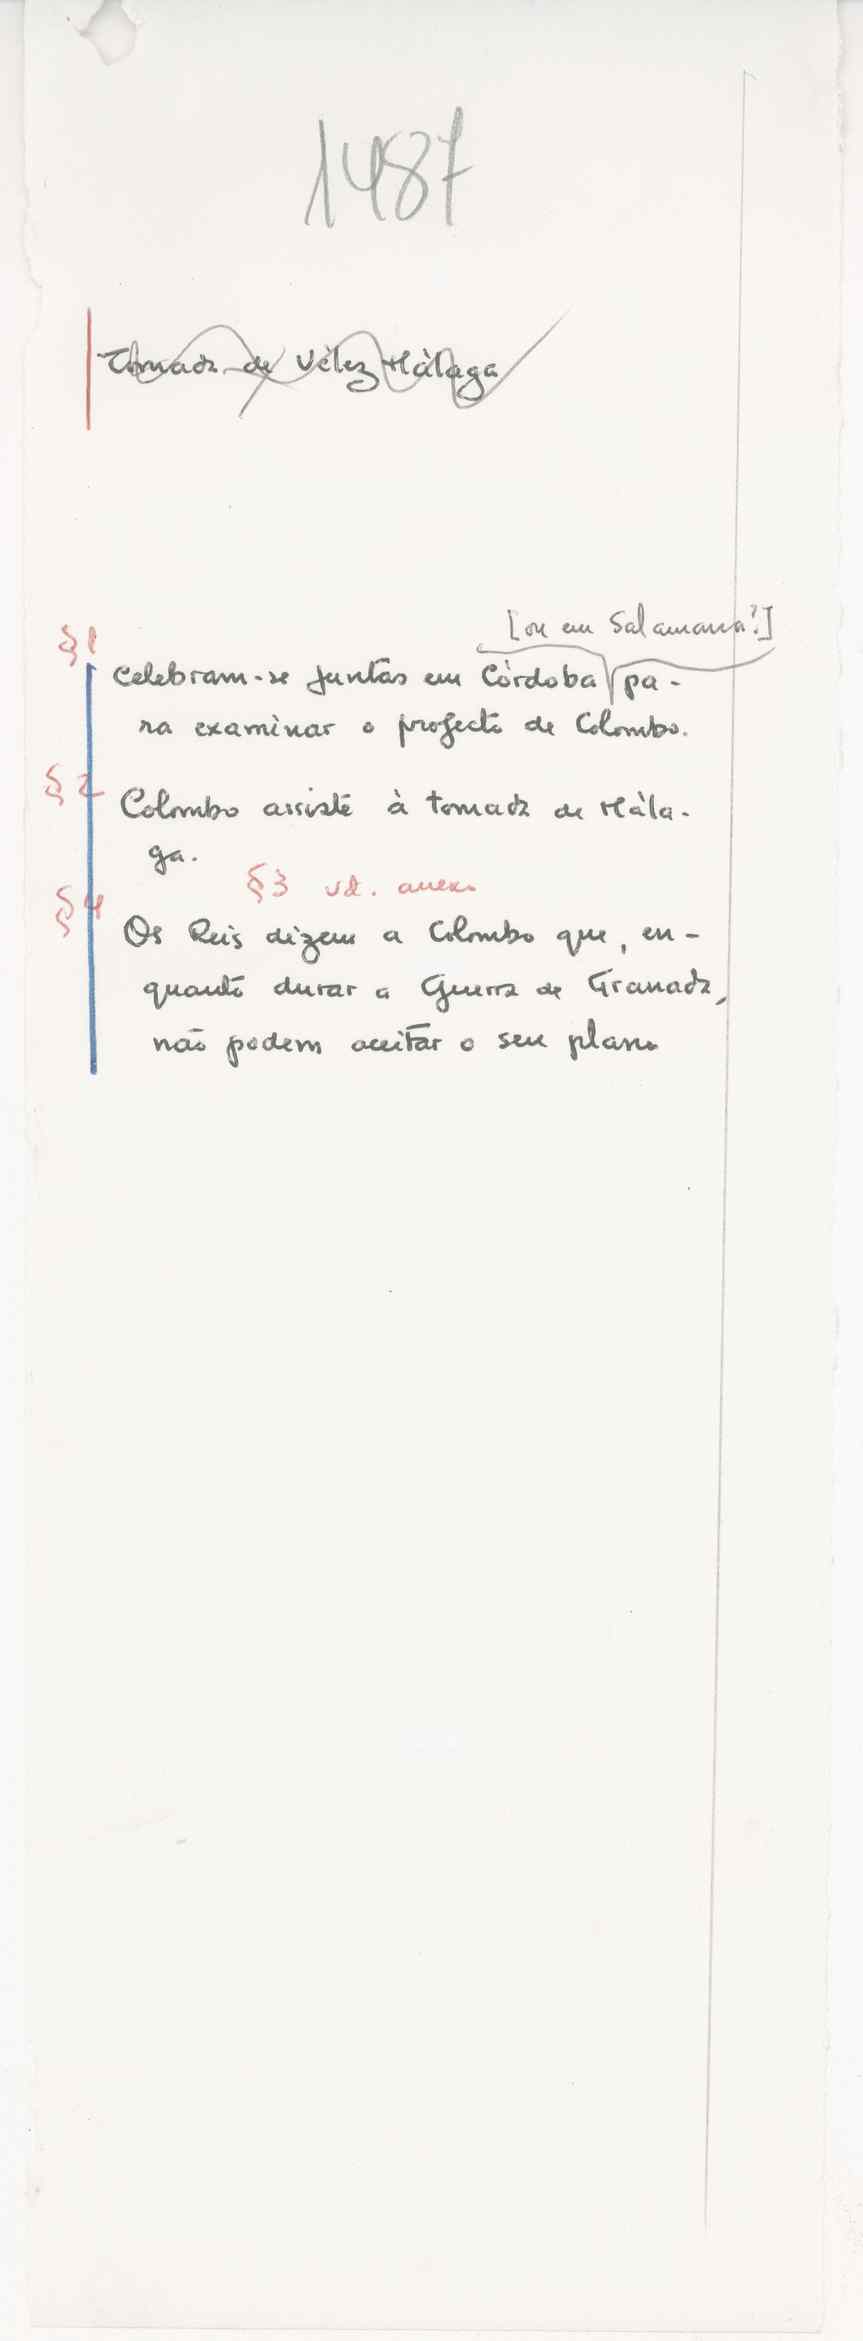 1487
Tomada de Vélez Málaga
[ou em Salamanca?]
§1
Celebram-se Juntas em Córdoba pa-
ra examinar o projecto de Colombo.
§2
Colombo assiste à tomada de Mála-
ga.
§3 vd. anexo
§4
Os Reis dizem a Colombo que, en-
quanto durar a Guerra de Granada,
não podem aceitar o seu plano